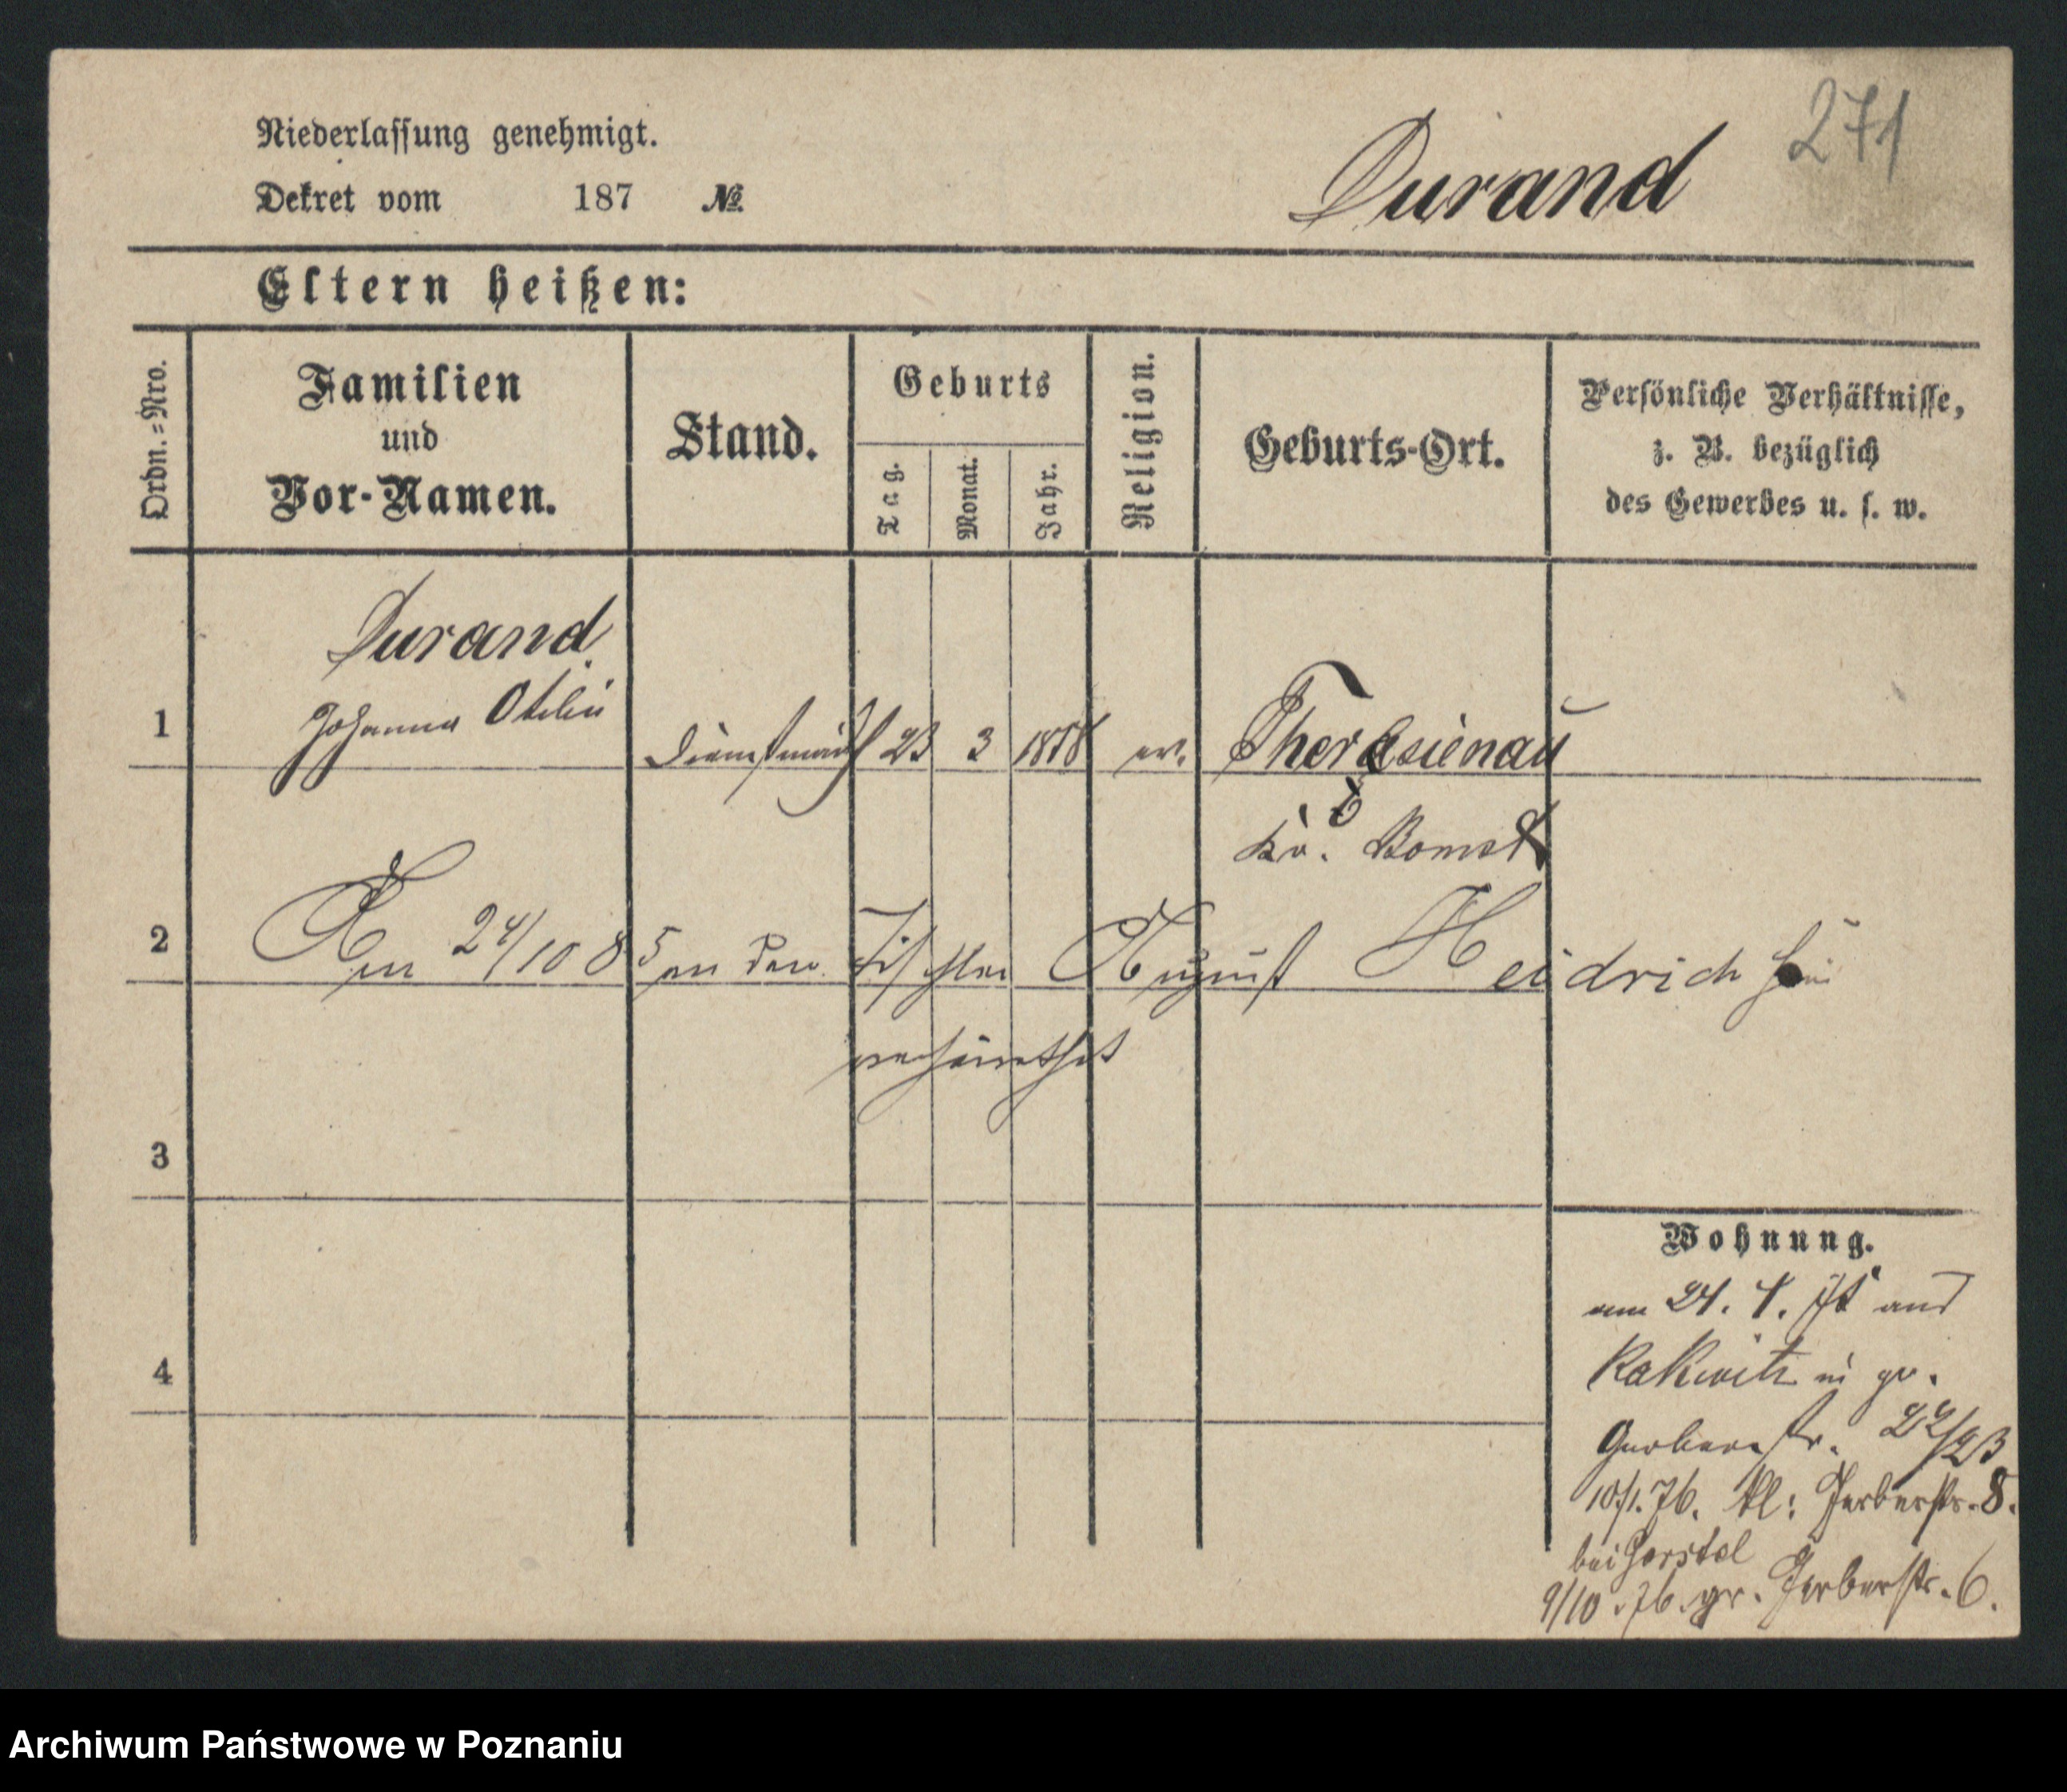 271
Niederlassung genehmigt.
Durand
Dekret vom 187 №
Eltern heißen:
Ordn.=Nro.
Familien
und
Vor-Namen.
Stand.
Geburts
Tag.
Monat.
Jahr.
Religion.
Geburts-Ort.
Persönliche Verhältnisse,
z. B. bezüglich
des Gewerbes u. s. w.
Durand
Johanna Otilie
1 Dienstmädch 23 3 1858 ev. Theresienau
Kr. Bomst
2 Am 24/10 85 an den Tischler August Heidrich hier
verheirathet
3
4
Wohnung.
am 24. 4. aus
Rakwitz in gr.
Gerberstr. 22/23
10/1. 76. kl: Gerberstr. 8.
bei Gerstel
9/10. 76. gr. Gerberstr. 6.
Archiwum Państwowe w Poznaniu